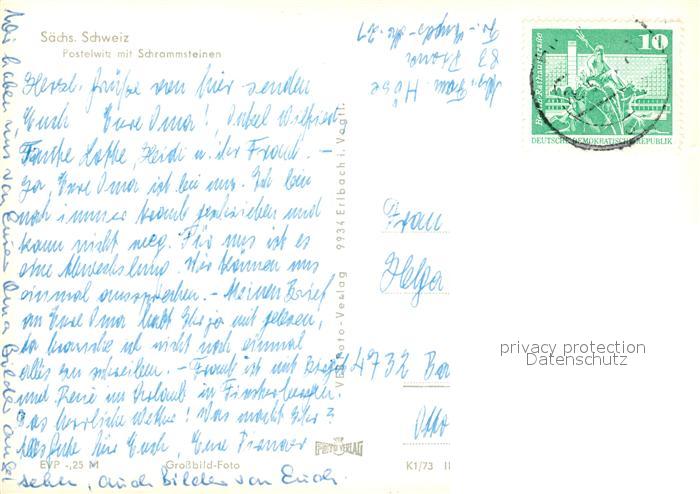 Sächs. Schweiz
Postelwitz mit Schrammsteinen
Herzl. Grüße von hier senden
Euch Eure Oma!, Onkel Wilfried
Tante Lotte, Heidi u. der Frank. –
Ja, Eure Oma ist bei uns. Ich bin
noch immer krank geschrieben und
kann nicht weg. Für uns ist es
eine Abwechslung. Wir können uns
einmal aussprechen. – Meinen Brief
an Eure Oma habt Ihr ja mit gelesen,
da brauche ich nicht noch einmal
alles zu schreiben. – Frank ist mit
und René im Urlaub in
Das herrliche Wetter! Was macht Ihr?
Alles Gute für Euch, Eure
Wir haben uns von Eurer Oma Bilder
sehen, auch Bilder von Euch.
EVP -,25 M
Großbild-Foto
Foto-Verlag 9934 Erlbach i. Vogtl.
FOTO VERLAG
K1/73
Frau
Helga
4732
Otto
10
DEUTSCHE DEMOKRATISCHE REPUBLIK
privacy protection
Datenschutz